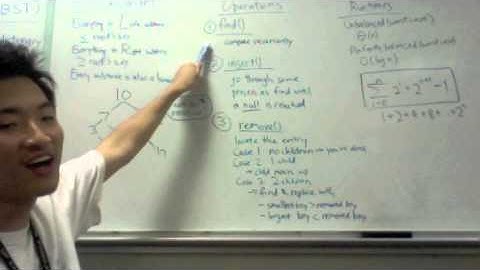 BST)
Everything in Left subtree
≤ root's key
Everything in Right subtree
≥ root's key
Every subtree is also a
10
7
Operations
① find()
compare recursively
② insert()
go through same
process as find until
a null is reached
③ remove()
locate the entry
Case 1: no children → you're done
Case 2: 1 child
→ child moves up
Case 3: 2 children
→ find & replace with
- smallest key > removed key
- largest key < removed key
Runtimes
Unbalanced (worst case)
Θ(n)
Perfectly balanced (worst case)
Θ(log n)
1+2+4+8+